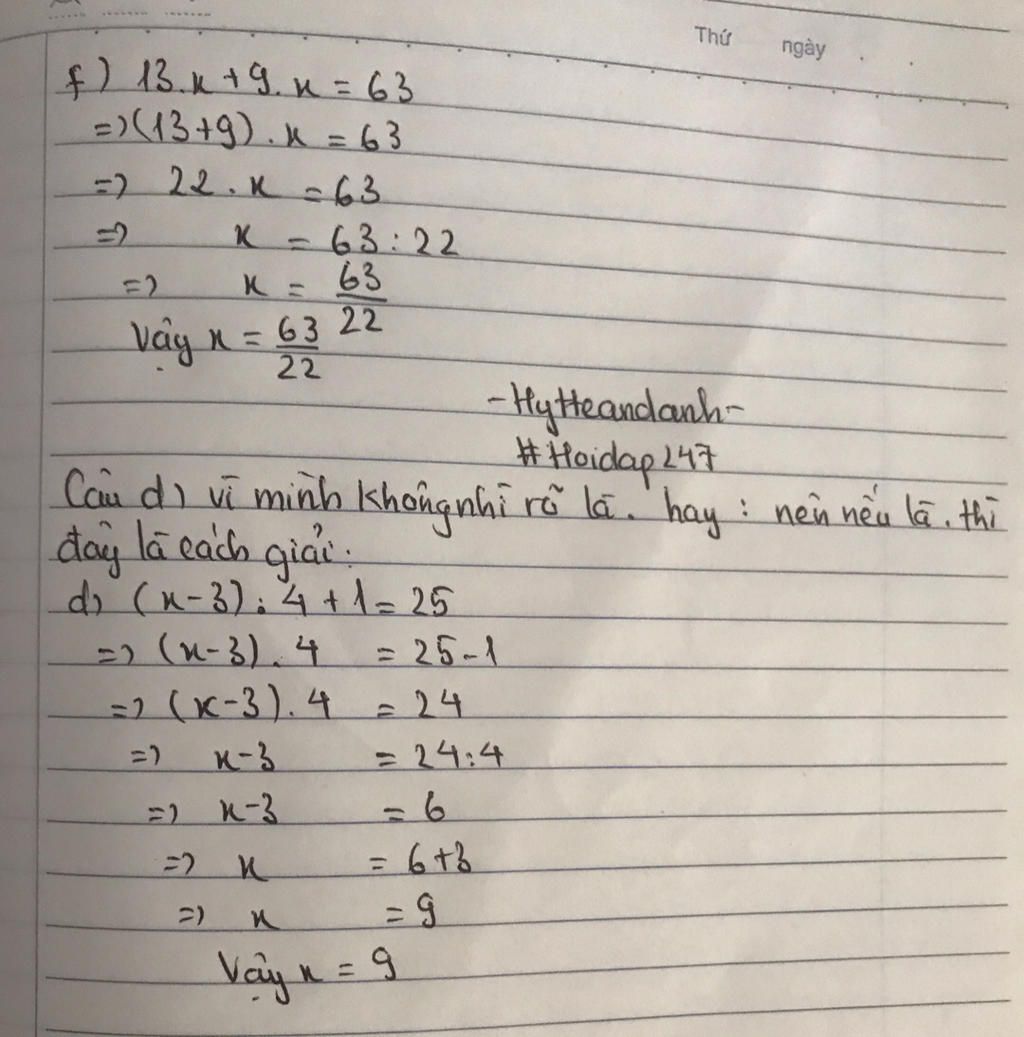 Thứ ngày
f) 13.x + 9.x = 63
=> (13+9).x = 63
=> 22.x = 63
=> x = 63:22
=> x = 63/22
Vậy x = 63/22
-Hytteandanh-
#Hoidap247
Câu d) vì mình không nhì rõ là . hay : nên nếu là . thì
đây là cách giải:
d) (x-3) : 4 + 1 = 25
=> (x-3) . 4 = 25-1
=> (x-3) . 4 = 24
=> x-3 = 24:4
=> x-3 = 6
=> x = 6+3
=> x = 9
Vậy x = 9